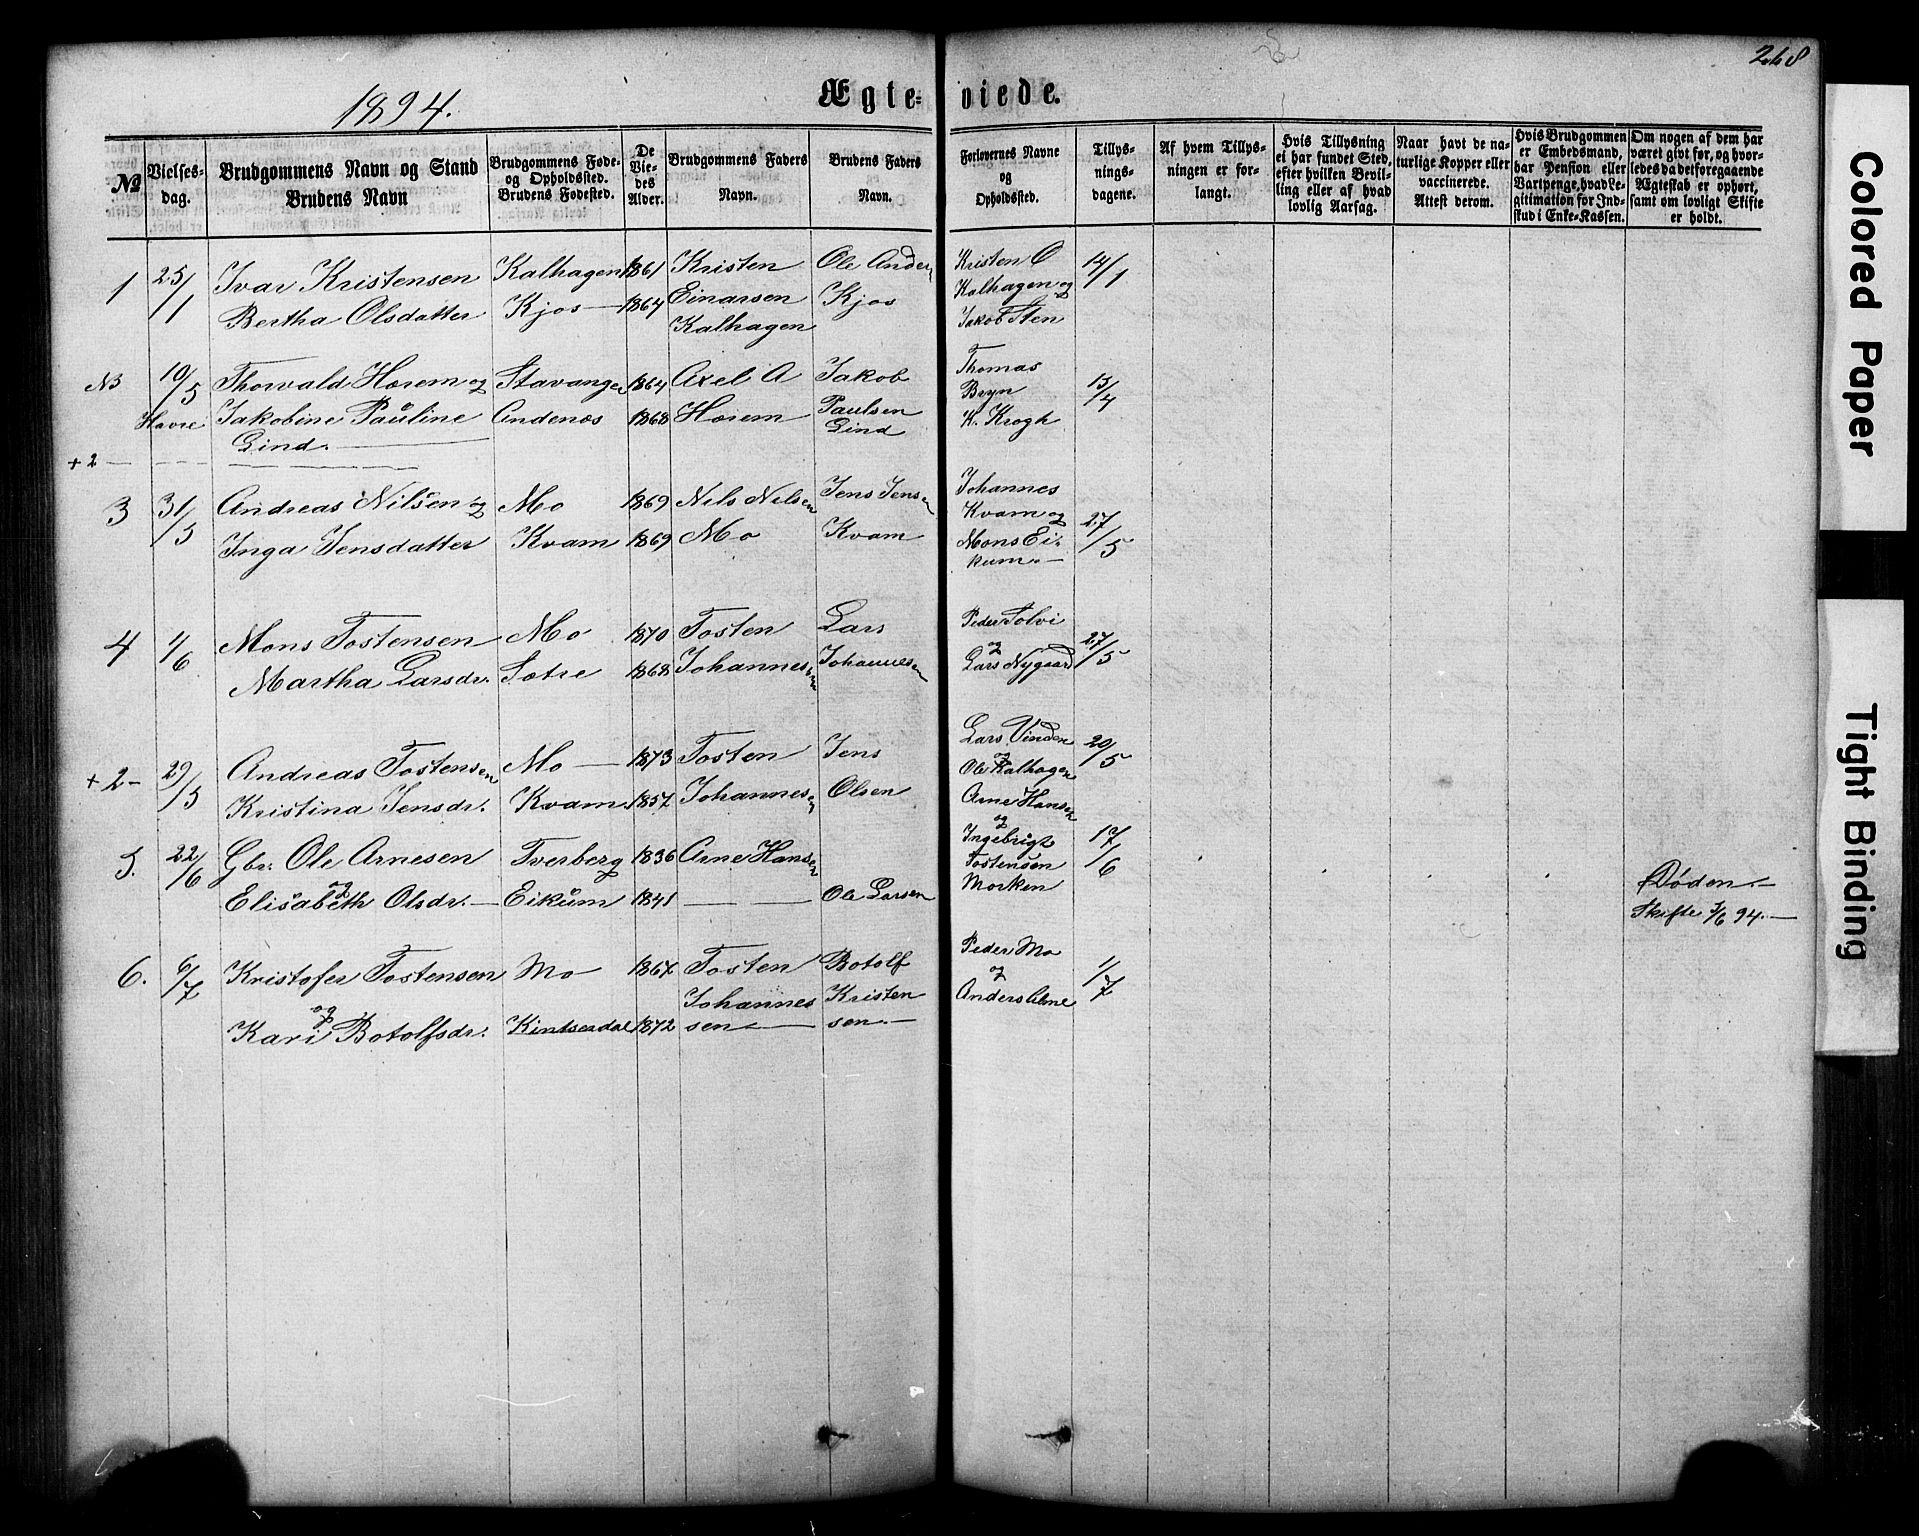 268
1894.
Ægte- viede.
No
Vielses-
dag.
Brudgommens Navn og Stand
Brudens Navn
Brudgommens Føde-
og Opholdssted.
Brudens Fødested.
De
Vie-
des
Alder.
Brudgommens Faders
Navn.
Brudens Faders
Navn.
Forlovernes Navne
og
Opholdssted.
Tillys-
nings-
dagene.
Af hvem Tillys-
ningen er for-
langt.
Hvis Tillysning
ei har fundet Sted,
efter hvilken Bevil-
ling eller af hvad
lovlig Aarsag.
Naar havt de na-
turlige Kopper eller
vaccinerede.
Attest derom.
Hvis Brudgommen
er Embedsmand,
har Pension eller
Vartpenge, hvad Le-
gitimation for Ind-
skud i Enke-Kassen.
Om nogen af dem har
været givt før, og hvor-
ledes da det foregaaende
Ægteskab er ophørt,
samt om lovligt Skifte
er holdt.
1 25/1 Ivar Kristensen Kalhagen 1861 Kristen Ole Ander- Kristen O 14/1
Bertha Olsdatter Kjos — 1864 Einarsen Kjos Kalhagen og
Kalhagen Jakob Sten
NB 10/5 Thorvald Horem og Stavanger 1864 Axel A Jakob Thomas
Havre Jakobine Pauline Andenæs 1868 Horem Paulsen Bryn 15/4
Gind. — Gind K. Krogh
+2 —
3 31/5 Andreas Nilsen og Mo 1869 Nils Nilsen Jens Jensen Johannes
Inga Jensdatter Kvam 1869 Mo Kvam Kvam og 27/5
Mons Ei-
kum. —
4 1/6 Mons Tostensen Mo 1870 Tosten Lars Peder Tolvi
og 27/5
Martha Larsdr. Sætre 1868 Johannessen Johannesen Lars Nygaard
+2- 29/5 Andreas Tostensen Mo — 1873 Tosten Jens Lars Vinden 20/5
og
Ole Kalhagen
Kristina Jensdr. Kvam 1857 Johannesen Olsen Arne Hansen
og
5. 22/6 Gbr. Ole Arnesen Tverberg 1836 Arne Hansen Ingebrigt 17/6
og Tostensen
Elisabeth Olsdr. — Eikum 1841 — — Ole Larsen Morken Døden. —
Skifte /6 94. —
6. 6/7 Kristofer Tostensen Mo 1867 Tosten Botolf Peder Mo
og 1/7
og Johannes Kristen Anders
Kari Botolfsdr. Kinserdal 1872 sen — sen. —
Colored Paper
Tight Binding